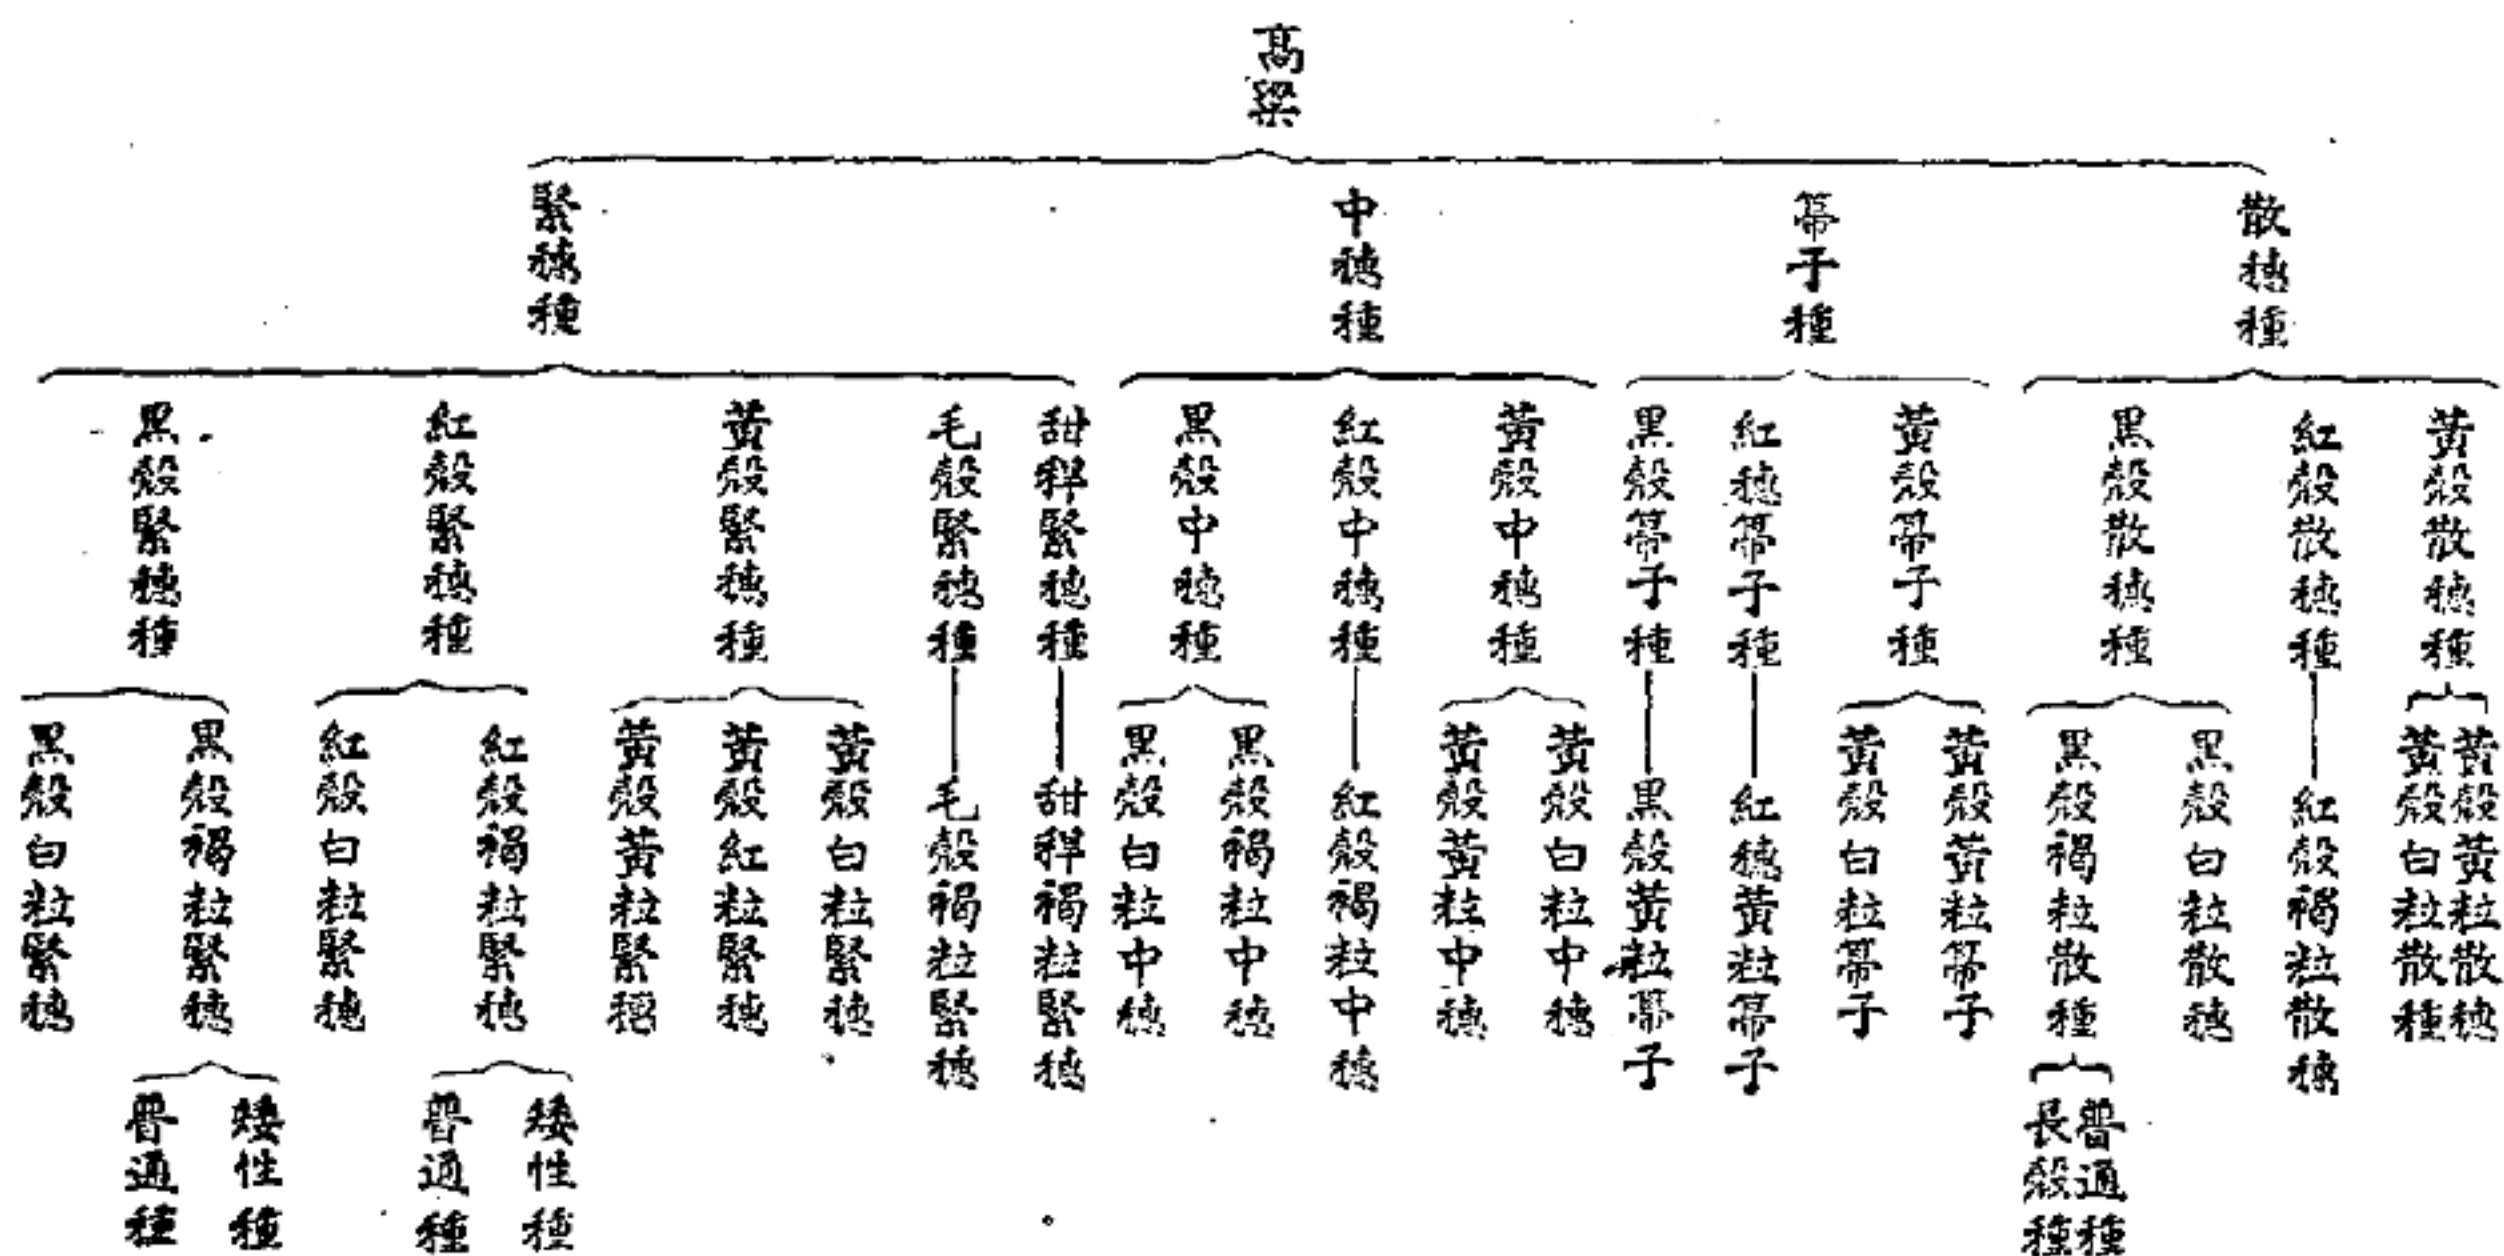 高粱
散穗種
箒子種
中穗種
緊穗種
黃殼散穗種
紅殼散穗種
黑殼散穗種
黃殼箒子種
紅穗箒子種
黑殼箒子種
黃殼中穗種
紅殼中穗種
黑殼中穗種
甜稈緊穗種
毛殼緊穗種
黃殼緊穗種
紅殼緊穗種
黑殼緊穗種
黃殼黃粒散穗
黃殼白粒散種
紅殼褐粒散穗
黑殼白粒散穗
黑殼褐粒散種
黃殼黃粒箒子
黃殼白粒箒子
紅穗黃粒箒子
黑殼黃粒箒子
黃殼白粒中穗
黃殼黃粒中穗
紅殼褐粒中穗
黑殼褐粒中穗
黑殼白粒中穗
甜稈褐粒緊穗
毛殼褐粒緊穗
黃殼白粒緊穗
黃殼紅粒緊穗
黃殼黃粒緊穗
紅殼褐粒緊穗
紅殼白粒緊穗
黑殼褐粒緊穗
黑殼白粒緊穗
普通種
長殼種
矮性種
普通種
矮性種
普通種